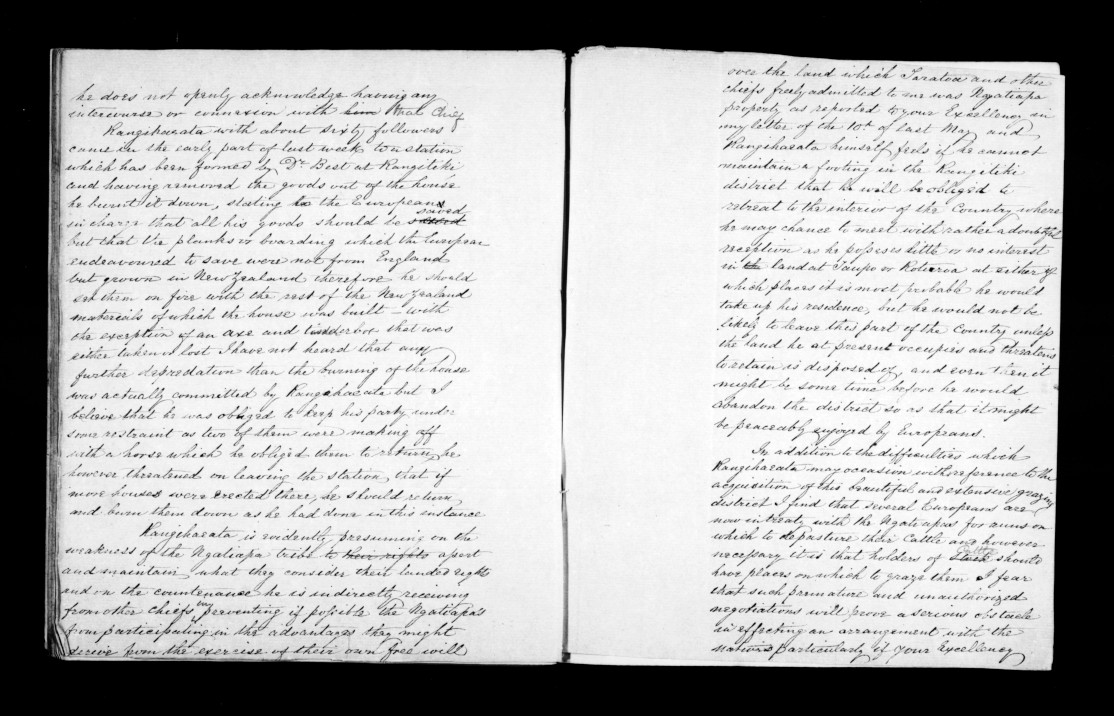 he does not openly acknowledge having any
intercourse or connexion with him that Chief
Rangihaeata with about sixty followers
came in the early part of last week to a station
which has been formed by Dr Best at Rangitiki
and having removed the goods out of the house
he burnt it down, stating to the Europeans
in charge that all his goods should be saved
but that the planks or boarding which the European
endeavoured to save were not from England
but grown in New Zealand therefore he should
set them on fire with the rest of the New Zealand
materials of which the house was built – with
the exception of an axe and tinderbox that was
either taken or lost I have not heard that any
further depredation than the burning of the house
was actually committed by Rangihaeata but I
believe that he was obliged to keep his party under
some restraint as two of them were making off
with a horse which he obliged them to return, he
however threatened on leaving the station, that if
more houses were erected there, he should return
and burn them down as he had done in this instance
Rangihaeata is evidently presuming on the
weakness of the Ngatiapa tribe to their rights assert
and maintain what they consider their landed rights
and on the countenance he is indirectly receiving
from other chiefs in preventing if possible the Ngatiapas
from participating in the advantages they might
derive from the exercise of their own free will
over the land which Taratoa and other
chiefs freely admitted to me was Ngatiapa
property as reported to your Excellency in
my letter of the 10th of last May and
Rangihaeata himself feels if he cannot
maintain a footing in the Rangitiki
district that he will be obliged to
retreat to the interior of the Country where
he may chance to meet with rather a doubtful
reception as he possesses little or no interest
in the land at Taupo or Roturoa at either of
which places it is most probable he would
take up his residence, but he would not be
likely to leave this part of the Country unless
the land he at present occupies and threatens
to retain is disposed of, and even then it
might be some time before he would
abandon the district so as that it might
be peaceably enjoyed by Europeans.
In addition to the difficulties which
Rangihaeata may occasion with reference to the
acquisition of this beautiful and extensive grazing
district I find that several Europeans are
now in treaty with the Ngatiapas for runs on
which to depasture their Cattle and however
necessary it is that holders of Stock Cattle should
have places on which to graze them I fear
that such premature and unauthorized
negotiations will prove a serious obstacle
in effecting an arrangement with the
natives particularly if your Excellency